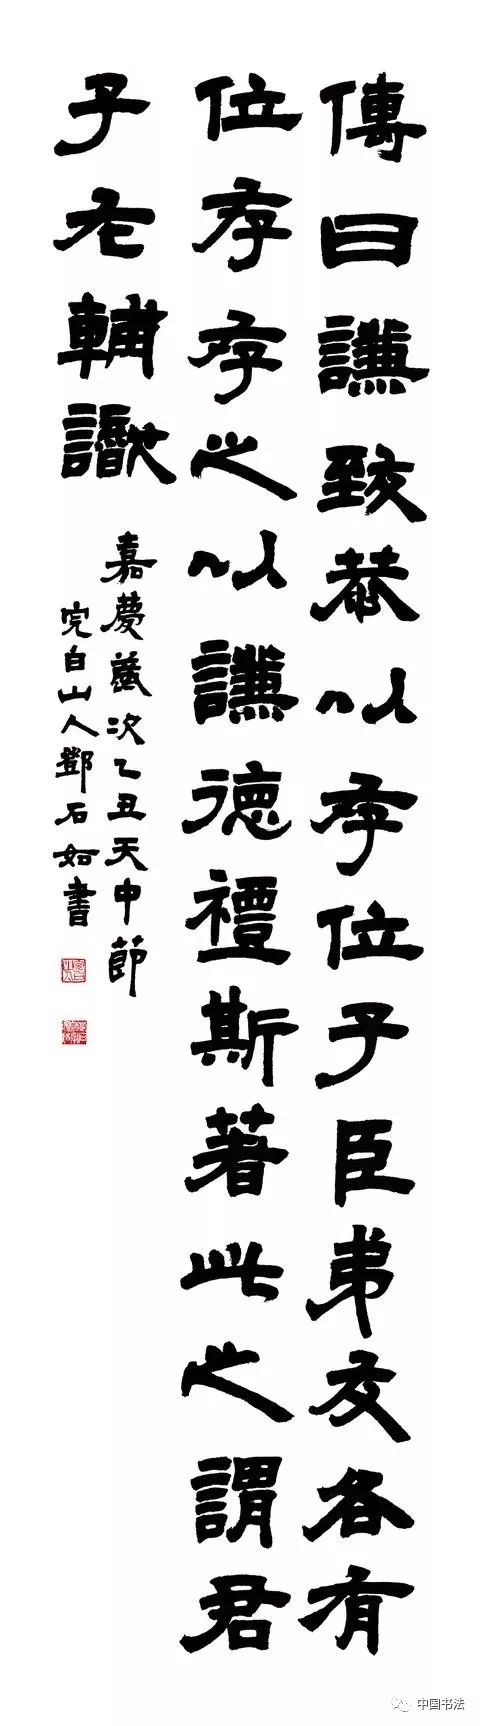 傳曰謙致恭以存位子臣弟友各有
位存存之以謙德禮斯著此之謂君
子輔
嘉慶歲次乙丑天中節
完白山人鄧石如書
中国书法